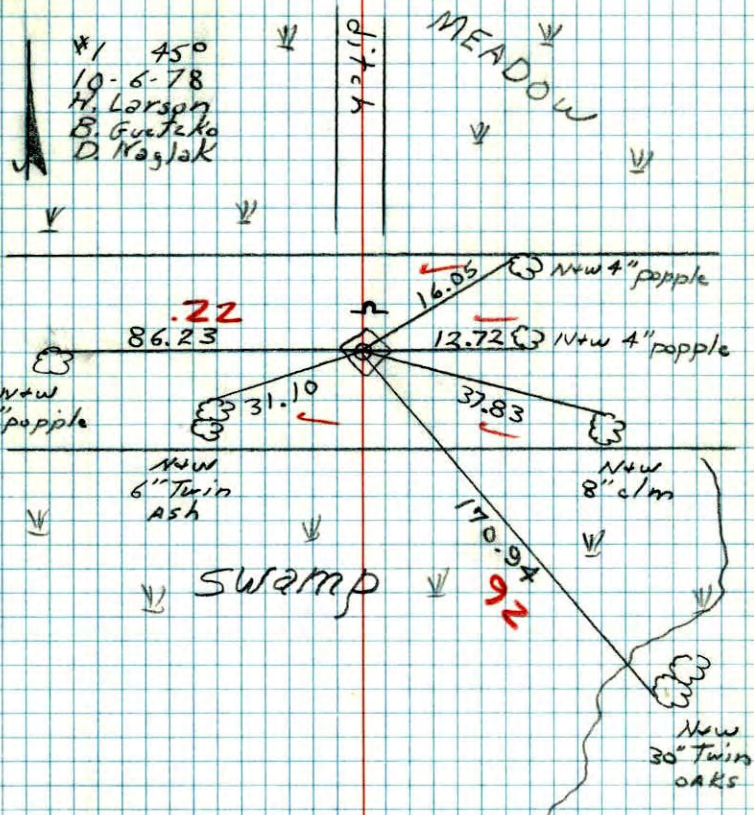 #1 45°
10-6-78
H. Larson
B. Guetzko
D. Naglak
ditch
MEADOW
16.05
N+W 4" popple
.22
86.23
12.72
N+W 4" popple
N+W
" popple
31.10
37.83
N+W
6" Twin
Ash
N+W
8" elm
170.94
92
swamp
N+W
30" Twin
OAKS